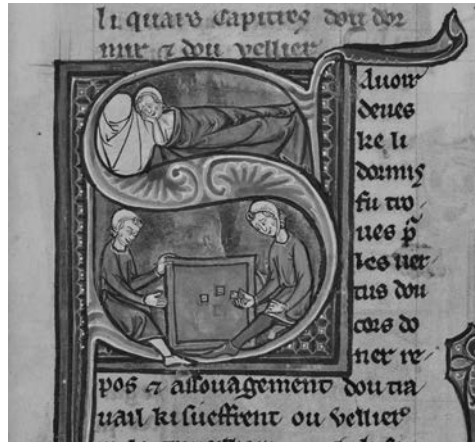 li quars capitres dou dor
mir ⁊ dou vellier
Auoir
deues
ke li
dormirs
fu tro
ues p̄
les uer
tus dou
cors do
ner re
pos ⁊ assouagement dou tra
uail ki sueffrent ou vellier